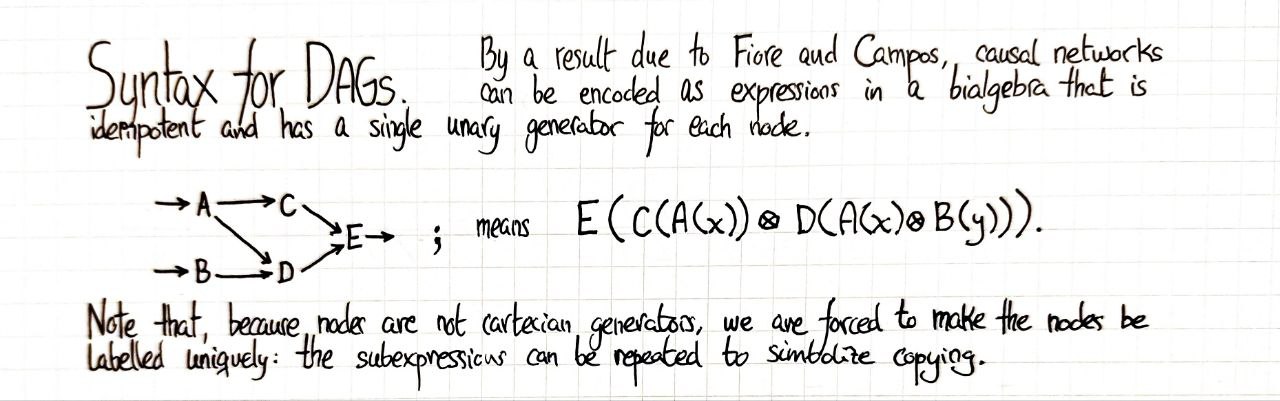 Syntax for DAGs. By a result due to Fiore and Campos, causal networks
can be encoded as expressions in a bialgebra that is
idempotent and has a single unary generator for each node.
→A→C
E→ ; means E(C(A(x))⊗D(A(x)⊗B(y))).
→B→D
Note that, because nodes are not cartesian generators, we are forced to make the nodes be
labelled uniquely: the subexpressions can be repeated to simbolize copying.